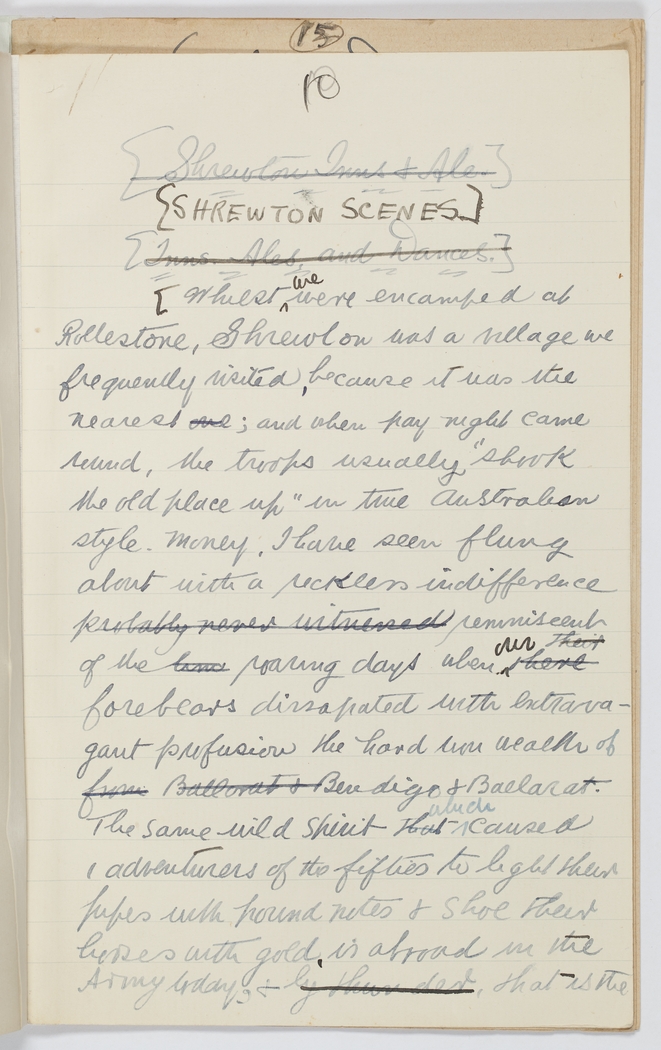 15
10
[Shrewton Inns & Ale.]
[SHREWTON SCENES.]
[Inns. Ales, and Dances.]
[Whilst we were encamped at
Rollestone, Shrewton was a village we
frequently visited, because it was the
nearest one; and when pay night came
round, the troops usually "shook
the old place up" in true Australian
style. Money, I have seen flung
about with a reckless indifference
probably never witnessed reminiscent
of the roaring days when our their there
forebears dissapated with extrava-
gant profusion the hard won wealth of
from Ballarat & Bendigo & Ballarat.
The same wild spirit that which caused
adventurers of the fifties to light their
pipes with pound notes & shoe their
horses with gold, is abroad in the
Army today; - by thunder, that is the